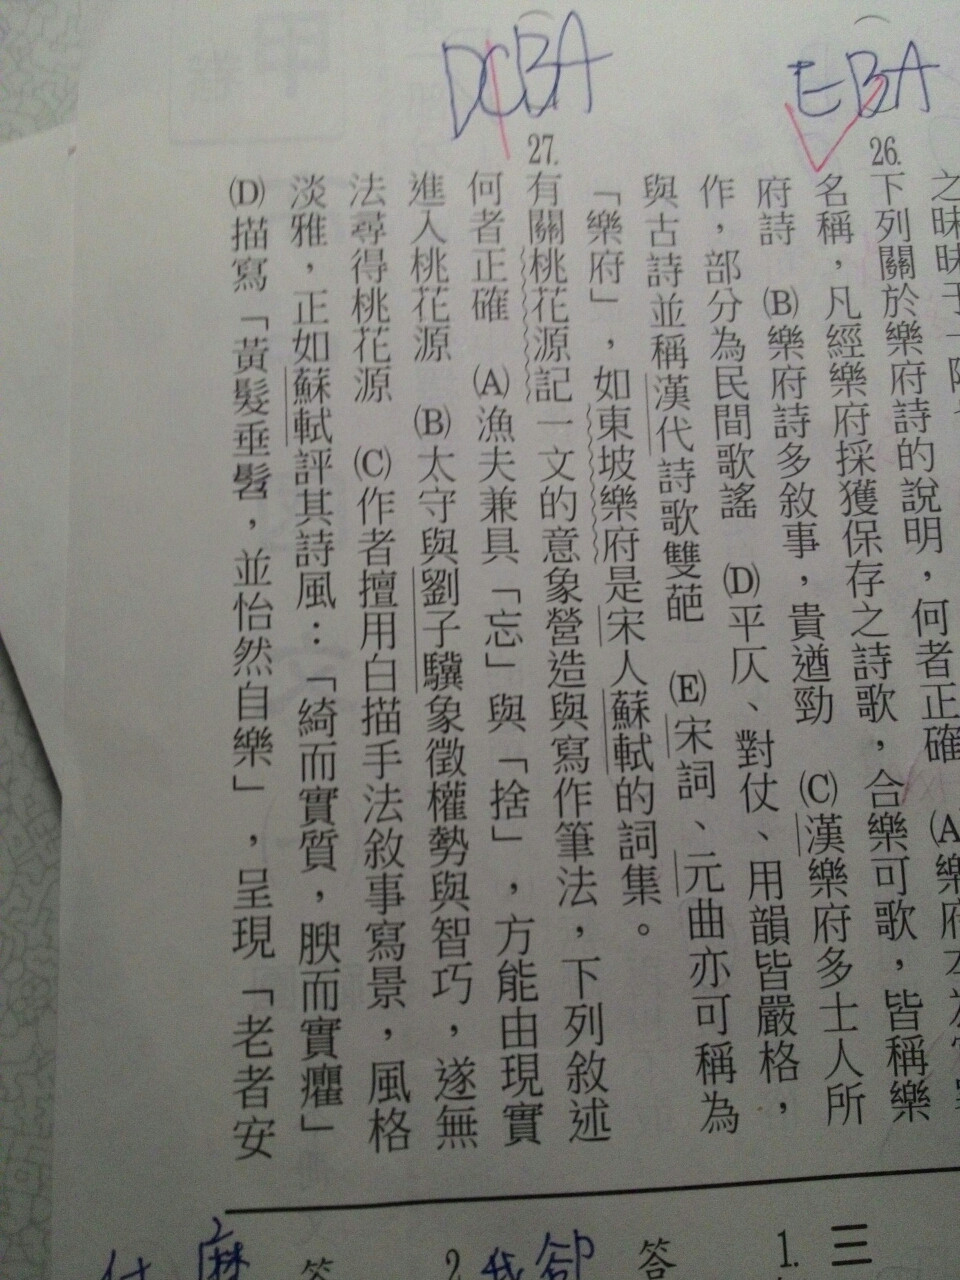 之昧昧于一
EBA
26.
下列關於樂府詩的說明，何者正確 (A)樂府
名稱，凡經樂府採獲保存之詩歌，合樂可歌，皆稱樂
府詩 (B)樂府詩多敘事，貴遒勁 (C)漢樂府多士人所
作，部分為民間歌謠 (D)平仄、對仗、用韻皆嚴格，
與古詩並稱漢代詩歌雙葩 (E)宋詞、元曲亦可稱為
「樂府」，如東坡樂府是宋人蘇軾的詞集。
DCBA
27.
有關桃花源記一文的意象營造與寫作筆法，下列敘述
何者正確 (A)漁夫兼具「忘」與「捨」，方能由現實
進入桃花源 (B)太守與劉子驥象徵權勢與智巧，遂無
法尋得桃花源 (C)作者擅用白描手法敘事寫景，風格
淡雅，正如蘇軾評其詩風：「綺而實質，腴而實癯」
(D)描寫「黃髮垂髫，並怡然自樂」，呈現「老者安
三
1.
答
我卻
2.
答
什麼